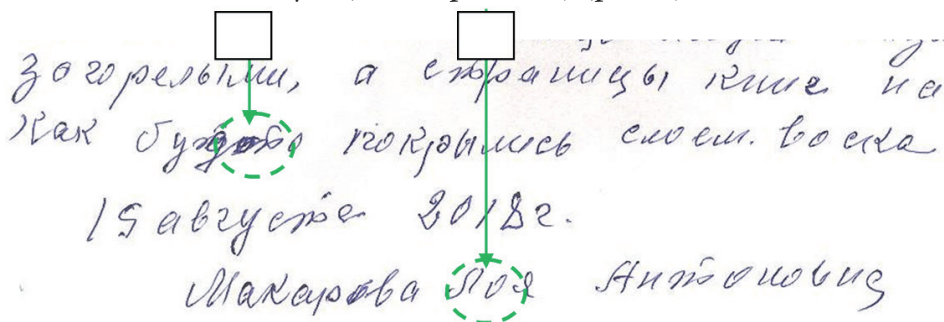 загорелыми, а страницы книг на
как будто покрылись слоем воска
15 августа 2018г.
Макарова Зоя Антоновна